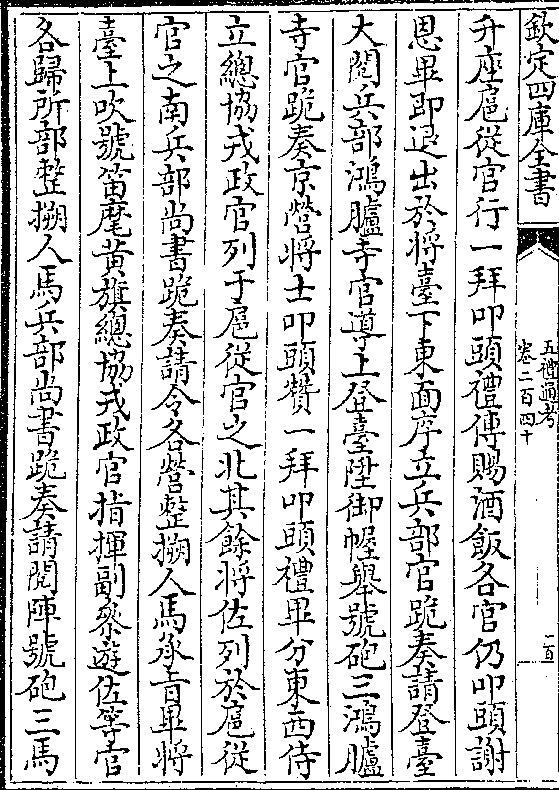 欽定四庫全書
五禮通考
卷二百四十
升座扈從官行一拜叩頭禮傳賜酒飯各官仍叩頭謝
恩畢即退出於將臺下東面序立兵部官跪奏請登臺
大閱兵部鴻臚寺官導上登臺陞御幄舉號砲三鴻臚
寺官跪奏京營將士叩頭贊一拜叩頭禮畢分東西侍
立總協戎政官列于扈從官之北其餘將佐列於扈從
官之南兵部尚書跪奏請令各營整搠人馬承旨畢將
臺上吹號笛麾黃旗總協戎政官指揮副叅遊佐等官
各歸所部整搠人馬兵部尚書跪奏請閱陣號砲三馬